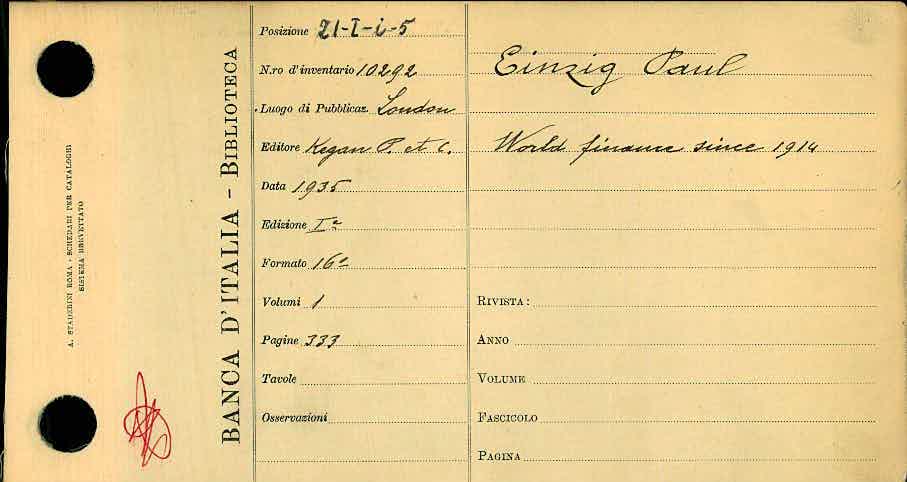 A. STADERINI ROMA - SCHEDARI PER CATALOGHI
SISTEMA BREVETTATO
BANCA D'ITALIA - BIBLIOTECA
Posizione 21-I-i-5
N.ro d'inventario 10292
Luogo di Pubblicaz. London
Editore Kegan P. et C.
Data 1935
Edizione Iª
Formato 16º
Volumi 1
Pagine 333
Tavole
Osservazioni
Einzig Paul
World finance since 1914
RIVISTA:
ANNO
VOLUME
FASCICOLO
PAGINA